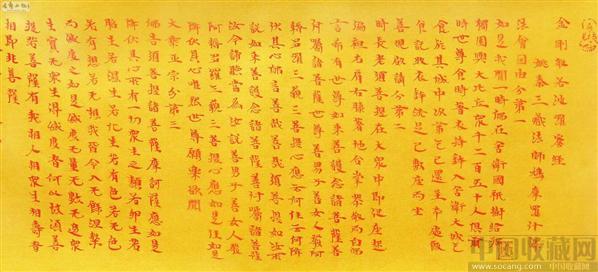 金剛般若波羅蜜經
姚秦三藏法師鳩摩羅什譯
法會因由分第一
如是我聞一時佛在舍衛國祇樹給孤
獨園與大比丘眾千二百五十人俱爾
時世尊食時著衣持鉢入舍衛大城乞
食於其城中次第乞已還至本處飯
食訖收衣鉢洗足已敷座而坐
善現啟請分第二
時長老須菩提在大眾中即從座起
偏袒右肩右膝著地合掌恭敬而白佛
言希有世尊如來善護念諸菩薩善
付囑諸菩薩世尊善男子善女人發阿
耨多羅三藐三菩提心應云何住云何降
伏其心佛言善哉善哉須菩提如汝所
說如來善護念諸菩薩善付囑諸菩薩
汝今諦聽當為汝說善男子善女人發
阿耨多羅三藐三菩提心應如是住如是
降伏其心唯然世尊願樂欲聞
大乘正宗分第三
佛告須菩提諸菩薩摩訶薩應如是
降伏其心所有一切眾生之類若卵生若
胎生若濕生若化生若有色若无色
若有想若无想我皆令入无餘涅槃
而滅度之如是滅度无量无數无邊眾
生實无眾生得滅度者何以故須菩
提若菩薩有我相人相眾生相壽者
相即非菩薩
中国收藏网
www.socang.com